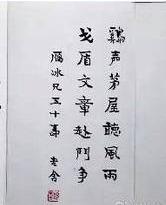 鷄声茅屋聽風雨
戈盾文章赴鬥争
冰兄五十壽
老舍